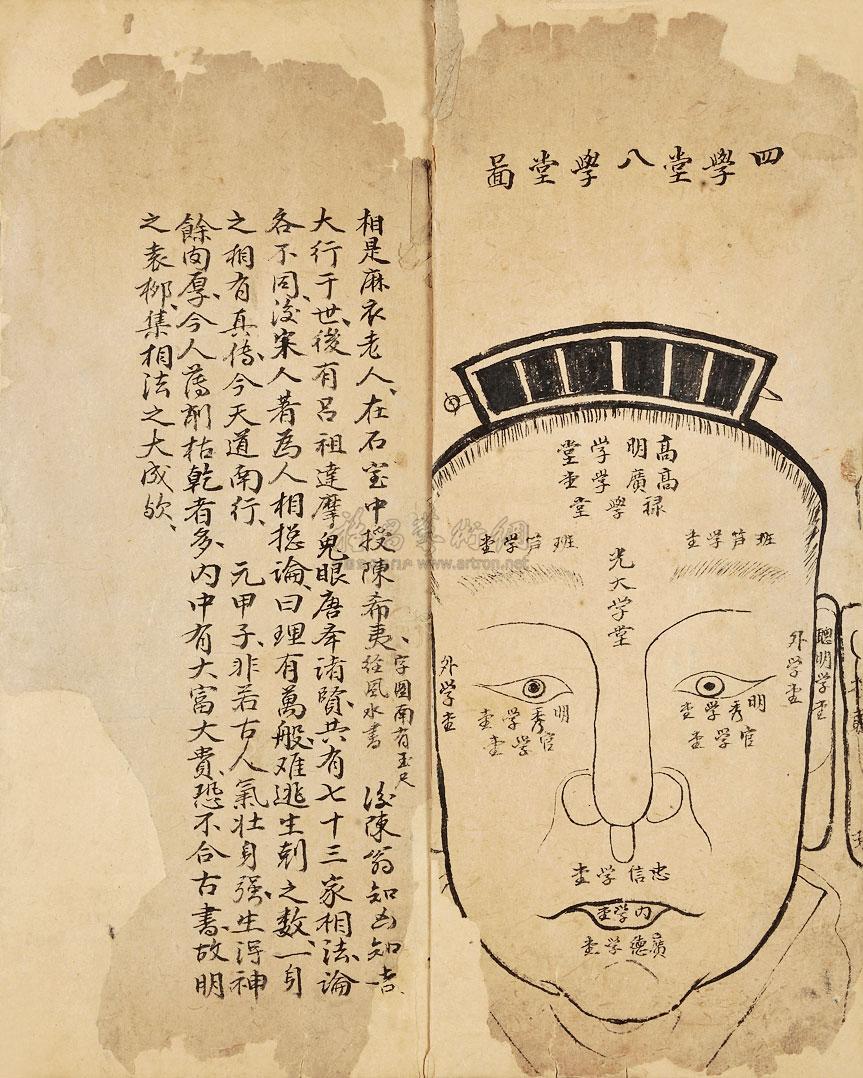 四學堂八學堂啚
高明學堂
高廣學堂
禄學堂
班笋学堂
班笋学堂
光大学堂
外学堂
外学堂
聰明学堂
明秀学堂
官学堂
明秀学堂
官学堂
忠信学堂
内学堂
廣德学堂
相是麻衣老人、在石室中授陳希夷、字圖南有玉尺
经風水書
後陳翁知凶知吉、
大行于世、後有吕祖達摩鬼眼唐举诸賢、共有七十三家相法、論
各不同、後宋人著為人相揔論、曰理有萬般、难逃生剋之数、一身
之相有真傳、今天道南行、元甲子、非若古人氣壮身强、生淂神
餘肉厚、今人薄削枯乾者多、内中有大富大貴、恐不合古書、故明
之袁柳、集相法之大成欤、
www.artron.net